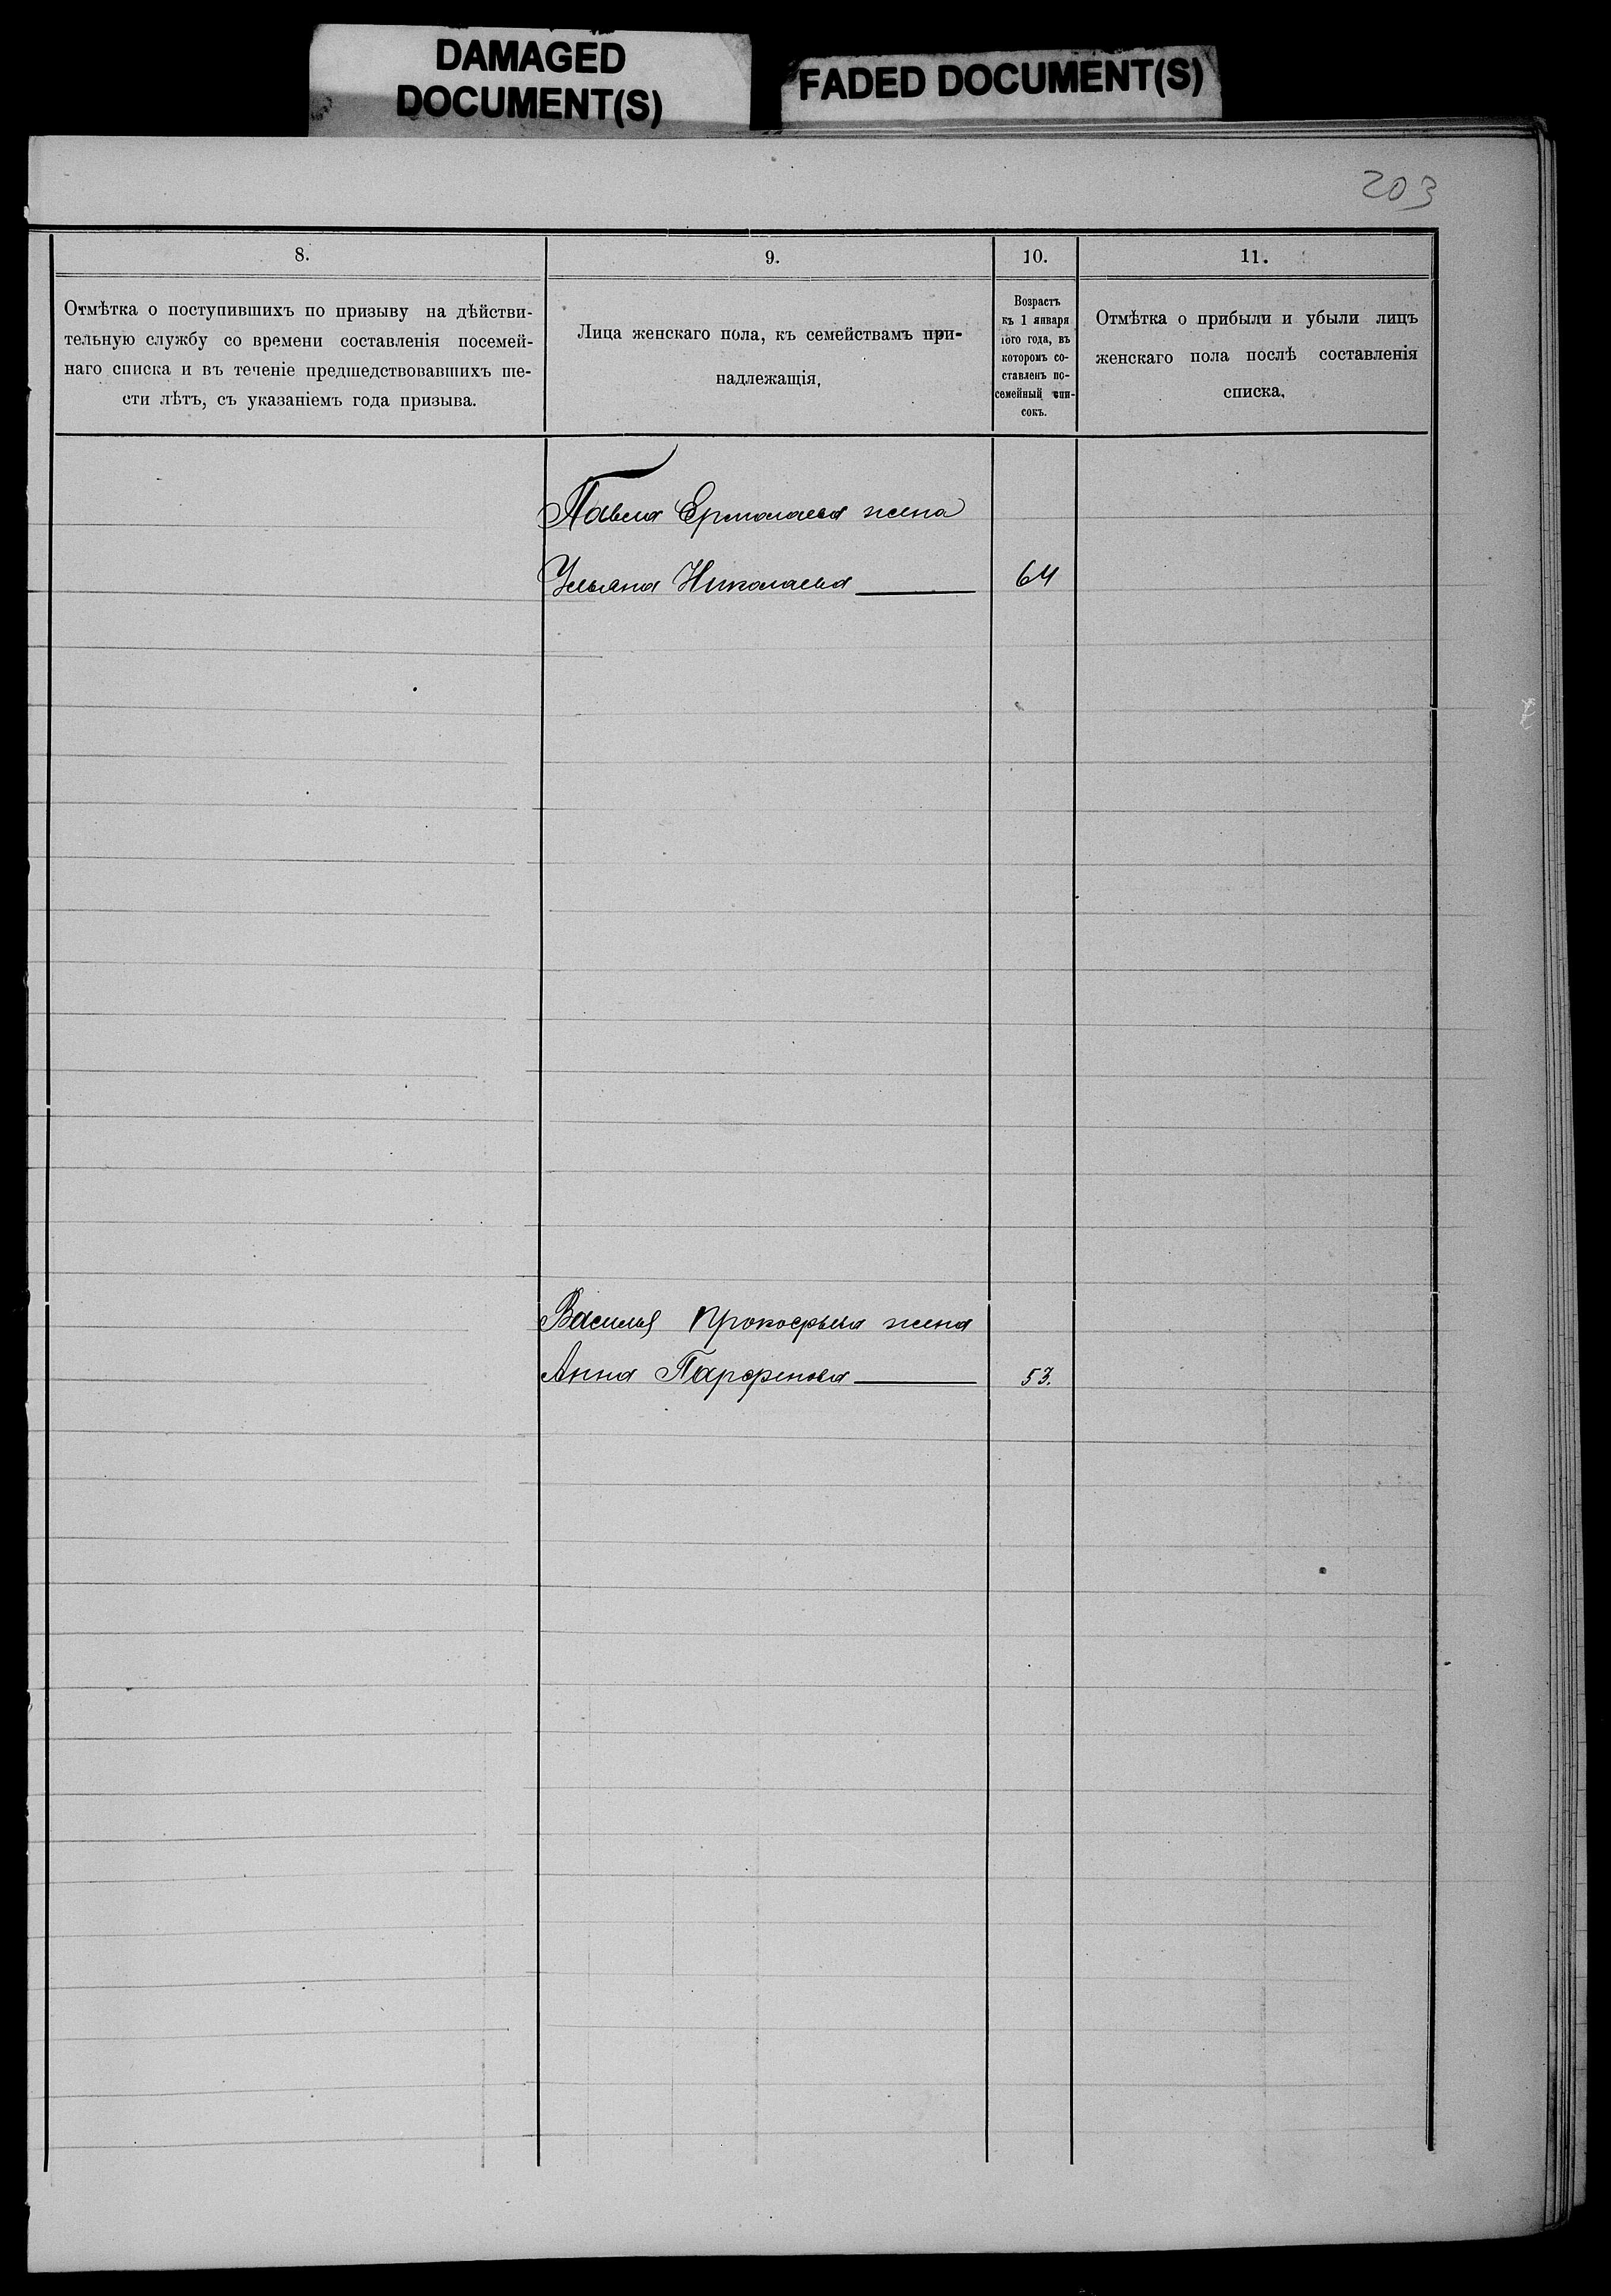 DAMAGED
DOCUMENT(S)
FADED DOCUMENT(S)
203
8.
Отмѣтка о поступившихъ по призыву на дѣйстви-
тельную службу со времени составленія посемей-
наго списка и въ теченіе предшедствовавшихъ ше-
сти лѣтъ, съ указаніемъ года призыва.
9.
Лица женскаго пола, къ семействамъ при-
надлежащія.
10.
Возрастъ
къ 1 января
того года, въ
которомъ со-
ставленъ по-
семейный спи-
сокъ.
11.
Отмѣтка о прибыли и убыли лицъ
женскаго пола послѣ составленія
списка.
Павла Ермолаева жена
Ульяна Николаева 64
Василья Прокофьева жена
Анна Парфенова 53.